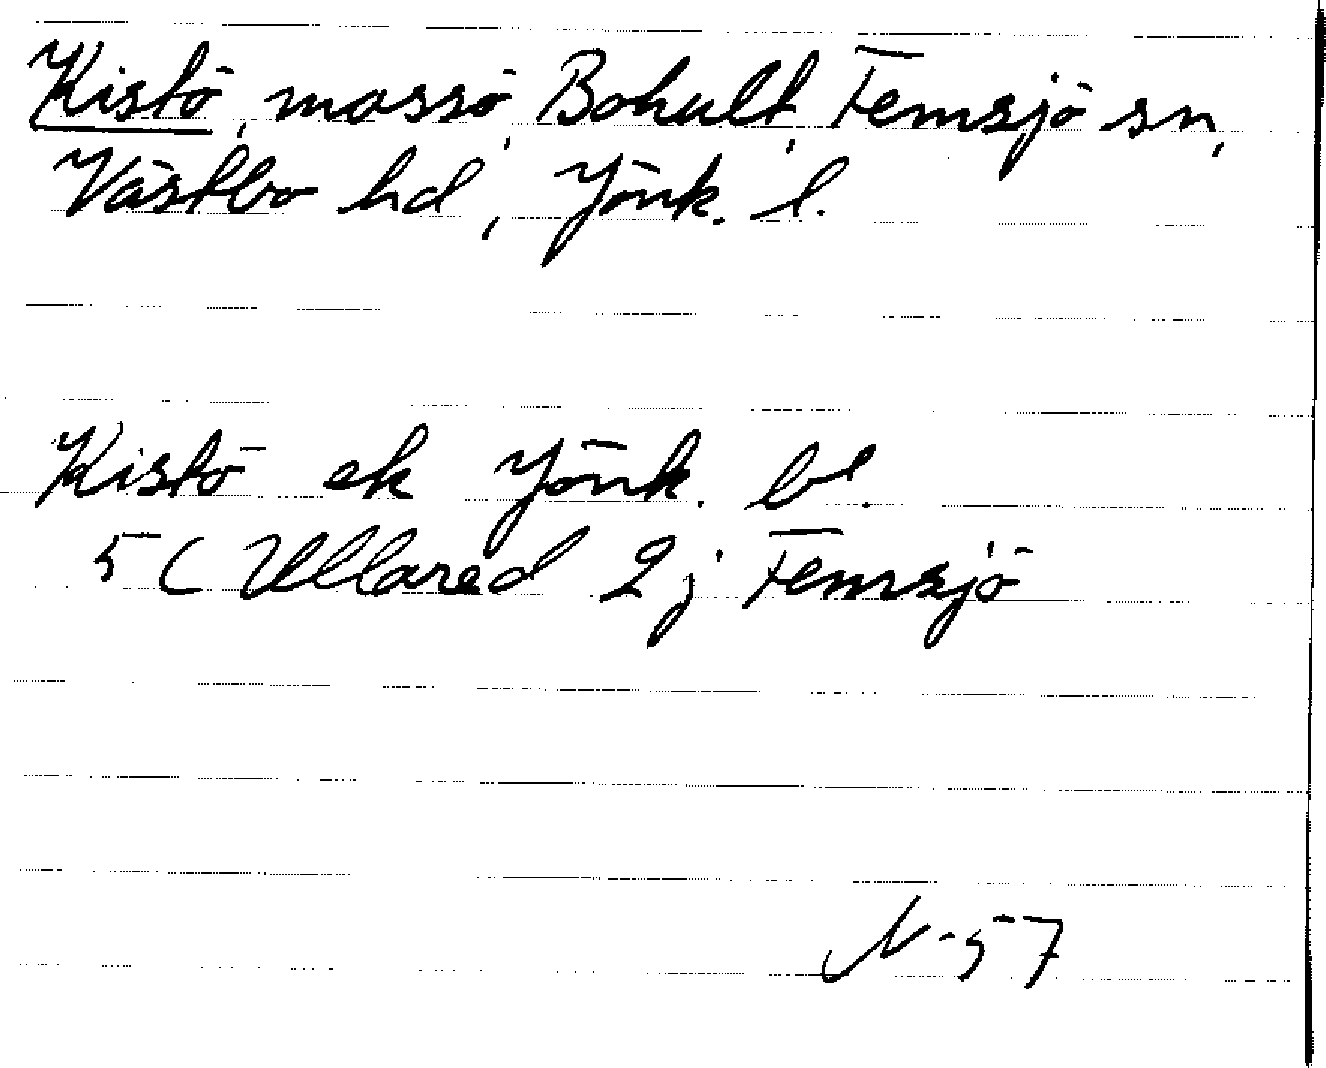 Kistö, mossö, Bohult, Femsjö sn,
Västbo hd, Jönk. l.
Kistö ek Jönk. bl.
5C Ullared 2j Femsjö
N-57